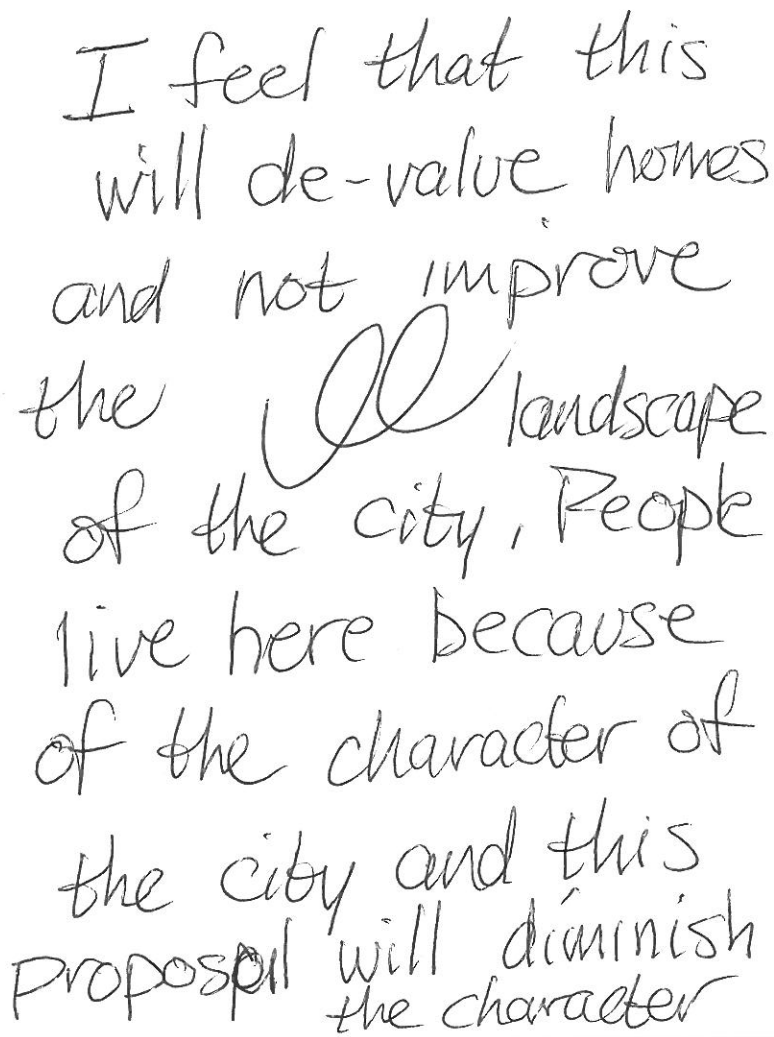 I feel that this
will de-value homes
and not improve
the landscape
of the city. People
live here because
of the character of
the city and this
proposal will diminish
the character